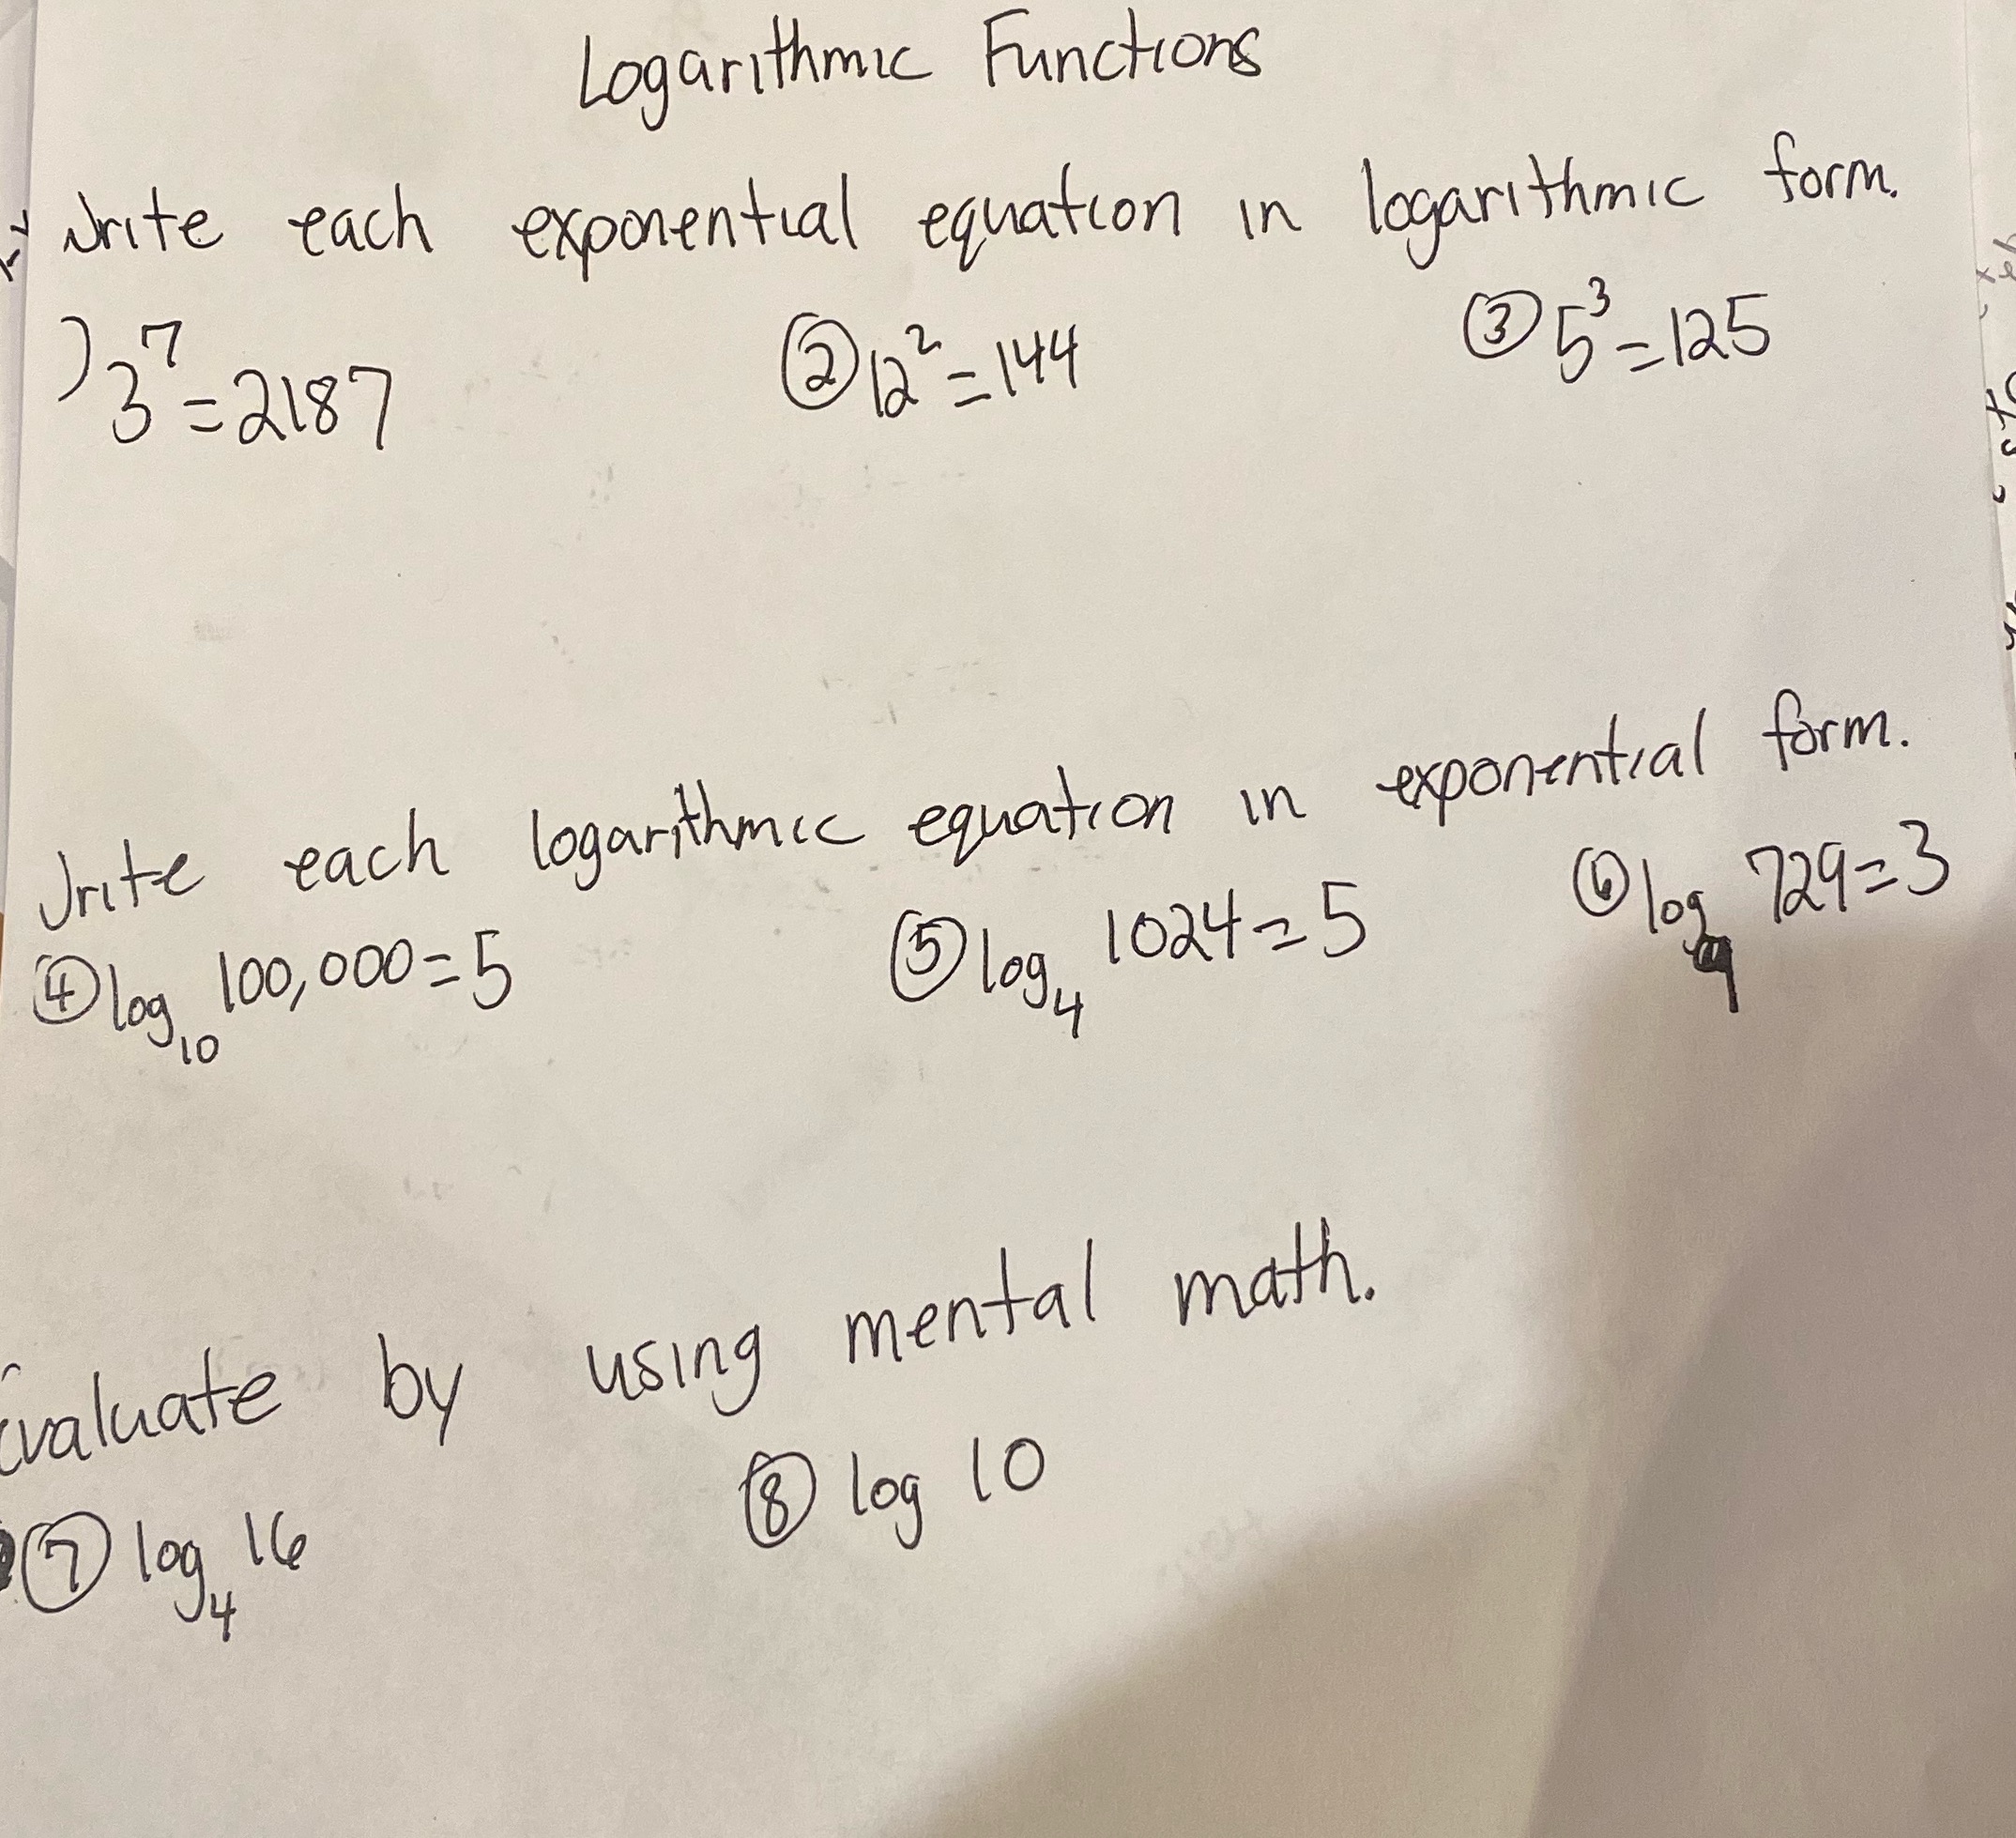 Logarithmic Functions
Write each exponential equation in logarithmic form.
) 3⁷=2187 ② 12²=144 ③ 5³=125
Write each logarithmic equation in exponential form.
④ log₁₀ 100,000=5 ⑤ log₄ 1024=5 ⑥ log₉ 729=3
Evaluate by using mental math.
⑦ log₄ 16 ⑧ log 10